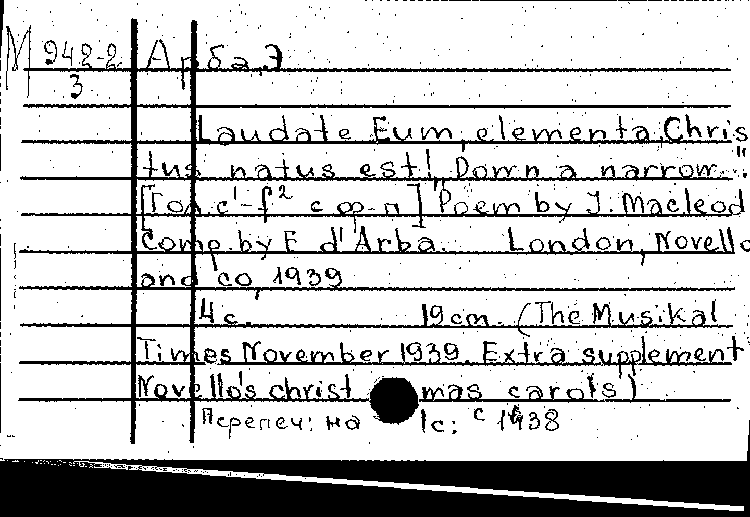 М 942-2 Арба, Э
3
Laudate Eum, elementa, Chris
tus natus est! "Down a narrow..."
[Гол. c¹-f² с ф-п] Poem by J. Macleod
Comp. by E d'Arba. London, Novello
and co, 1939
4 с. 19 cm. (The Musikal
Times November 1939. Extra supplement
Novello's christ mas carols)
Перепеч: на 1с: с 1938